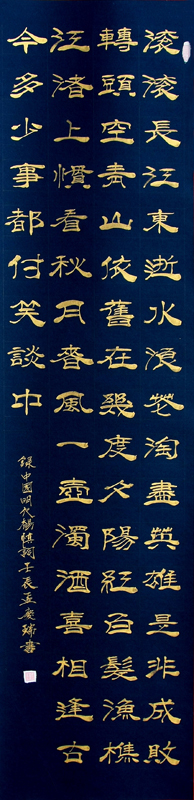 滚滚長江東逝水浪花淘盡英雄是非成敗
轉頭空青山依舊在幾度夕陽紅白髮漁樵
江渚上慣看秋月春風一壺濁酒喜相逢古
今多少事都付笑談中
錄中國明代楊慎詞壬辰孟慶瑞書